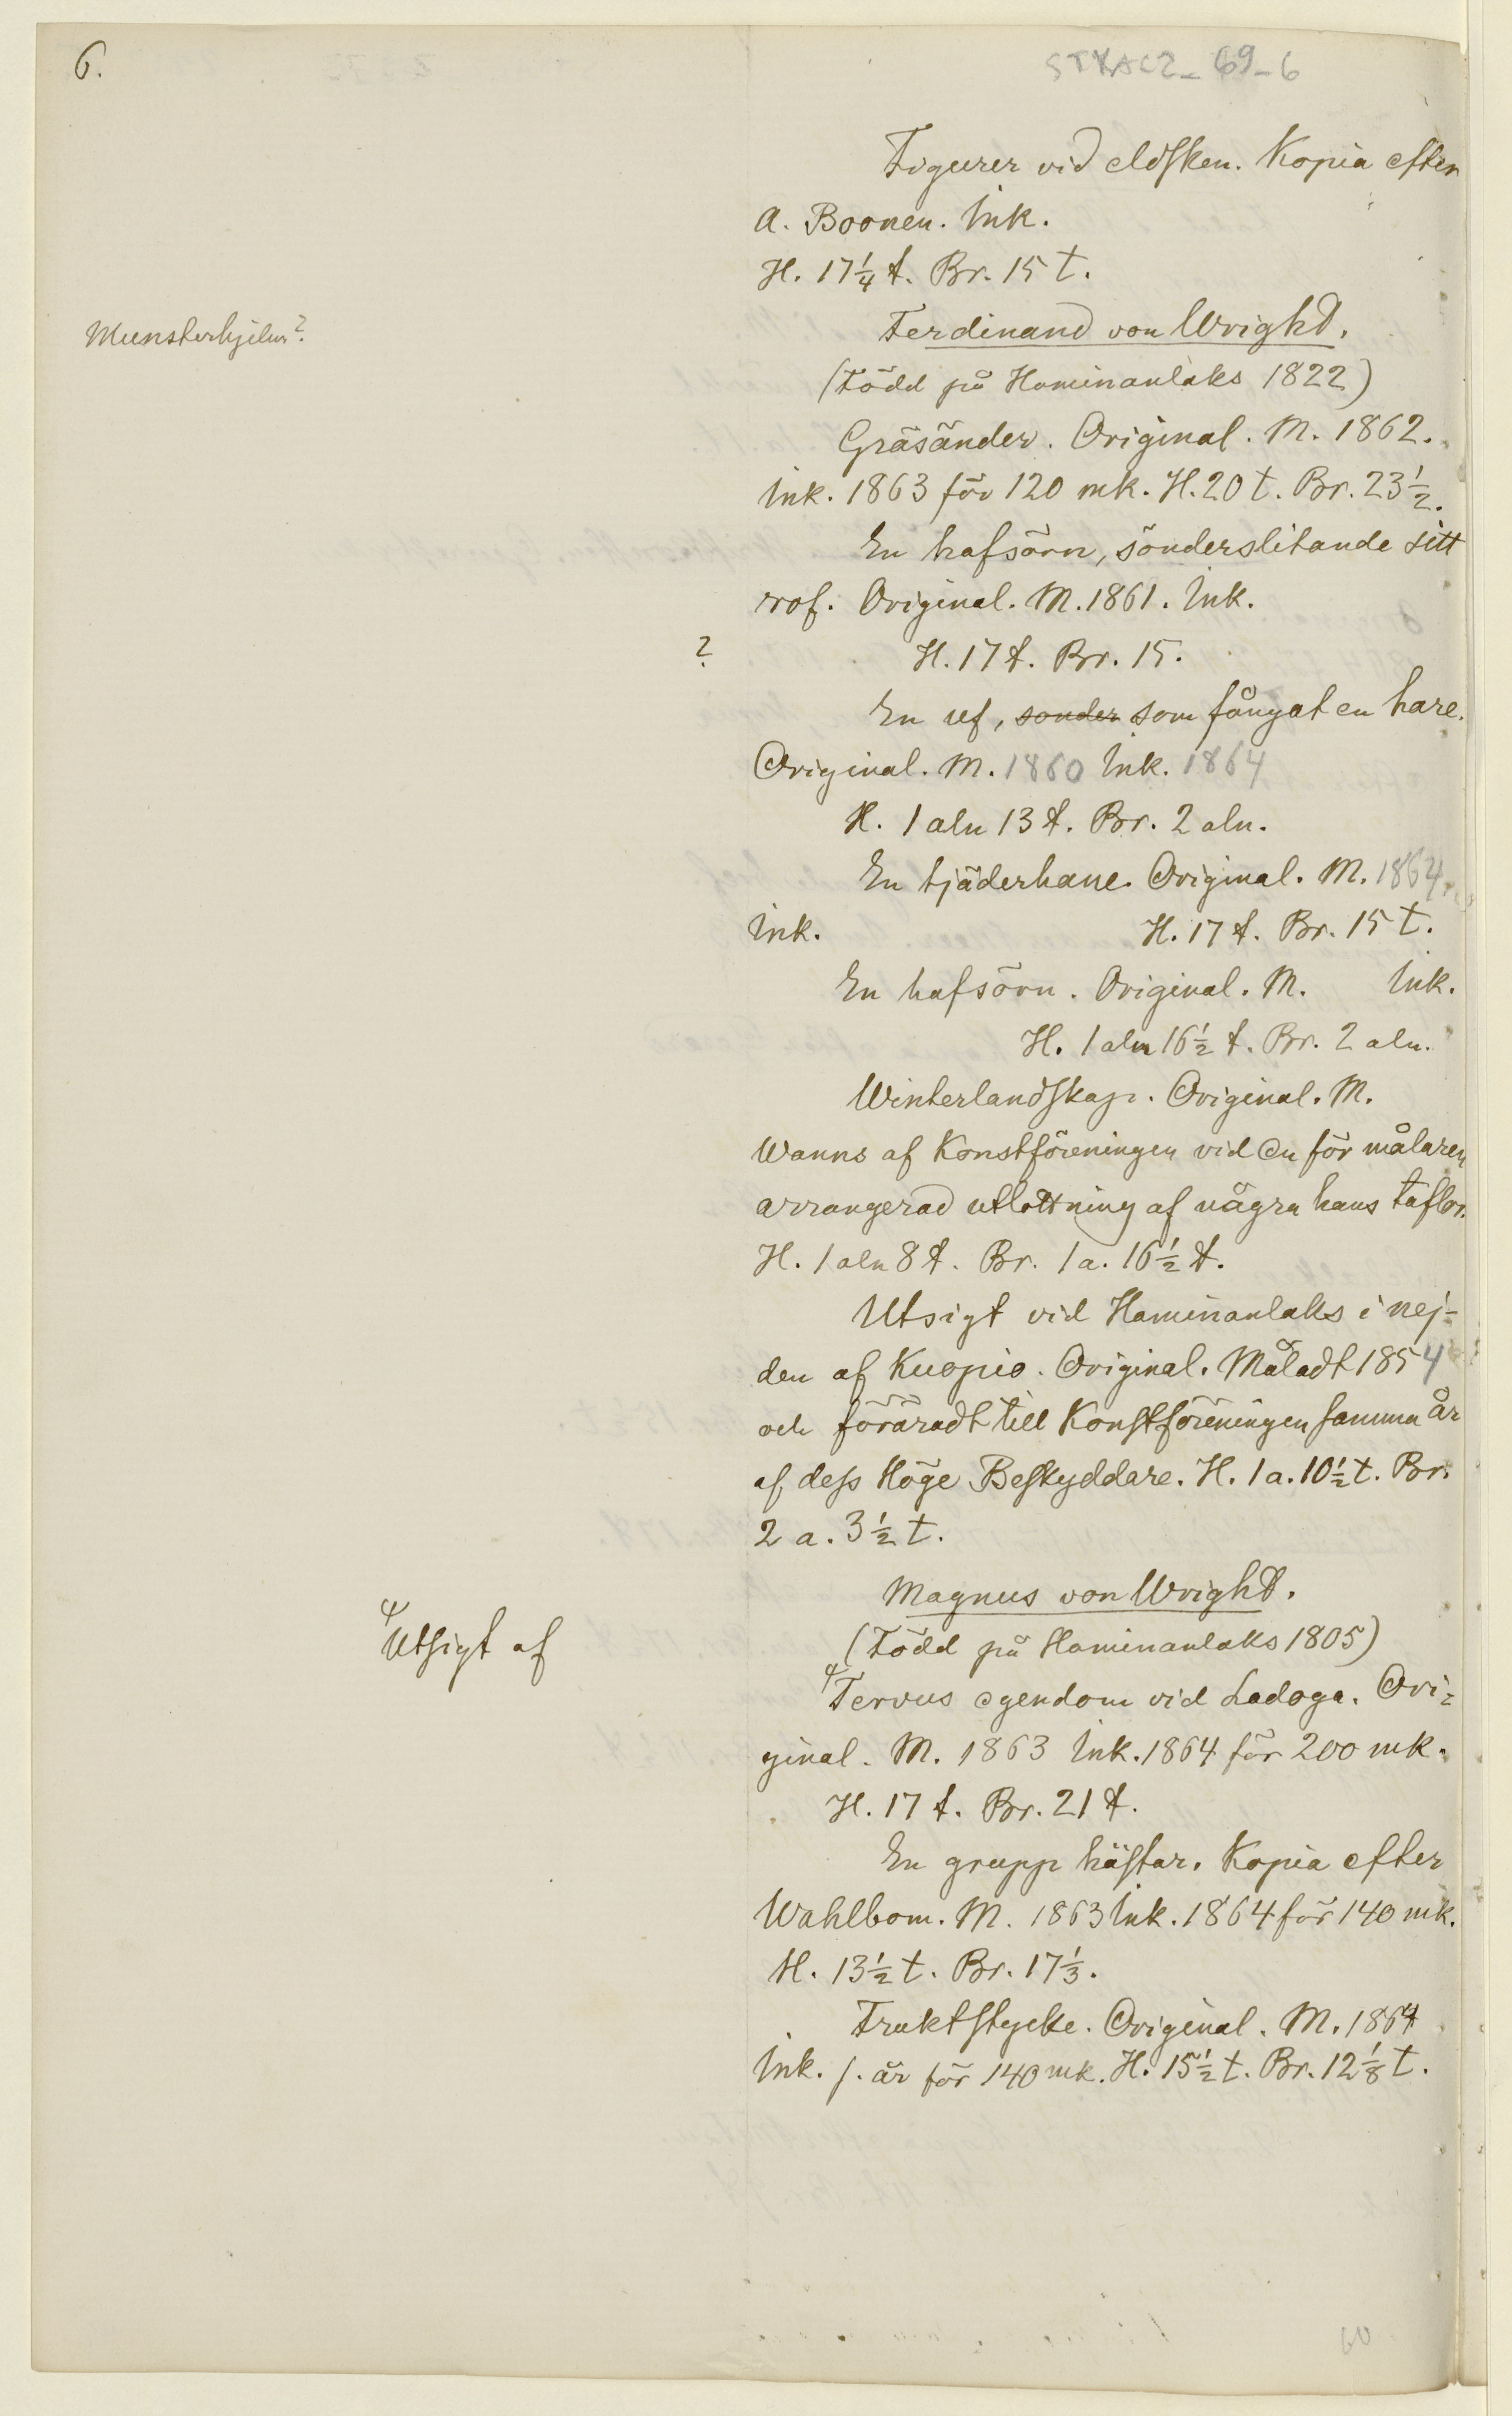 6.
STKAC2-69-6
Figurer vid eldsken. Kopia efter
A. Boonen. Ink.
H. 17¼ t. Br. 15 t.
Munsterhjelm?
Ferdinand von Wright.
(Född på Haminanlaks 1822)
Gräsänder. Original. M. 1862.
Ink. 1863 för 120 mk. H. 20 t. Br. 23½.
En hafsörn, sönderslitande sitt
rof. Original. M. 1861. Ink.
? H. 17 t. Br. 15.
En ref, sonder som fångat en hare.
Original. M. 1860 Ink. 1864
H. 1 aln 13 t. Br. 2 aln.
En tjäderhane. Original. M. 1864.
Ink. H. 17 t. Br. 15 t.
En hafsörn. Original. M. Ink.
H. 1 aln 16½ t. Br. 2 aln.
Winterlandskap. Original. M.
Wanns af Konstföreningen vid en för målaren
arrangerad utlottning af några hans taflor.
H. 1 aln 8 t. Br. 1 a. 16½ t.
Utsigt vid Haminanlaks i nej-
den af Kuopio. Original. Måladt 1854
och föräradt till Konstföreningen samma år
af dess Höge Beskyddare. H. 1 a. 10½ t. Br.
2 a. 3½ t.
Magnus von Wright.
(Född på Haminanlaks 1805)
Utsigt af
Tervus egendom vid Ladoga. Ori-
ginal. M. 1863 Ink. 1864 för 200 mk.
H. 17 t. Br. 21 t.
En grupp hästar. Kopia efter
Wahlbom. M. 1863 Ink. 1864 för 140 mk.
H. 13½ t. Br. 17⅓.
Fruktstycke. Original. M. 1864
Ink. s. år för 140 mk. H. 15½ t. Br. 12⅛ t.